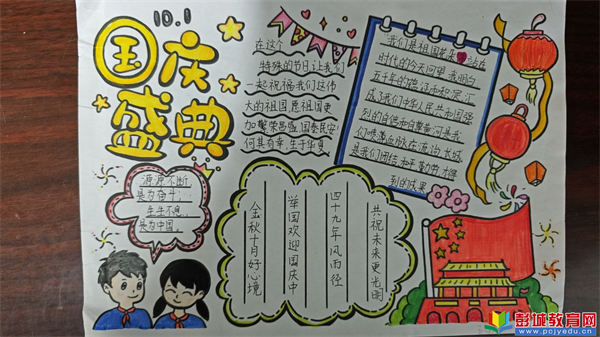 10.1
国庆
盛典
在这个
特殊的节日让我们
一起祝福我们这伟
大的祖国,愿祖国更
加繁荣昌盛,国泰民安!
何其有幸,生于华夏
我们是祖国花朵
时代的今天回望,我明白
五千年的
成了我们中华人民共和国强
烈的自信和自尊
是我们团结和平勤劳才得
到的成果
源源不断,
是为奋斗;
生生不息,
是为中国。
共祝未来更光明
四十九年风雨径
举国欢迎国庆中
金秋十月好心境
彭城教育网
www.pcjyedu.cn